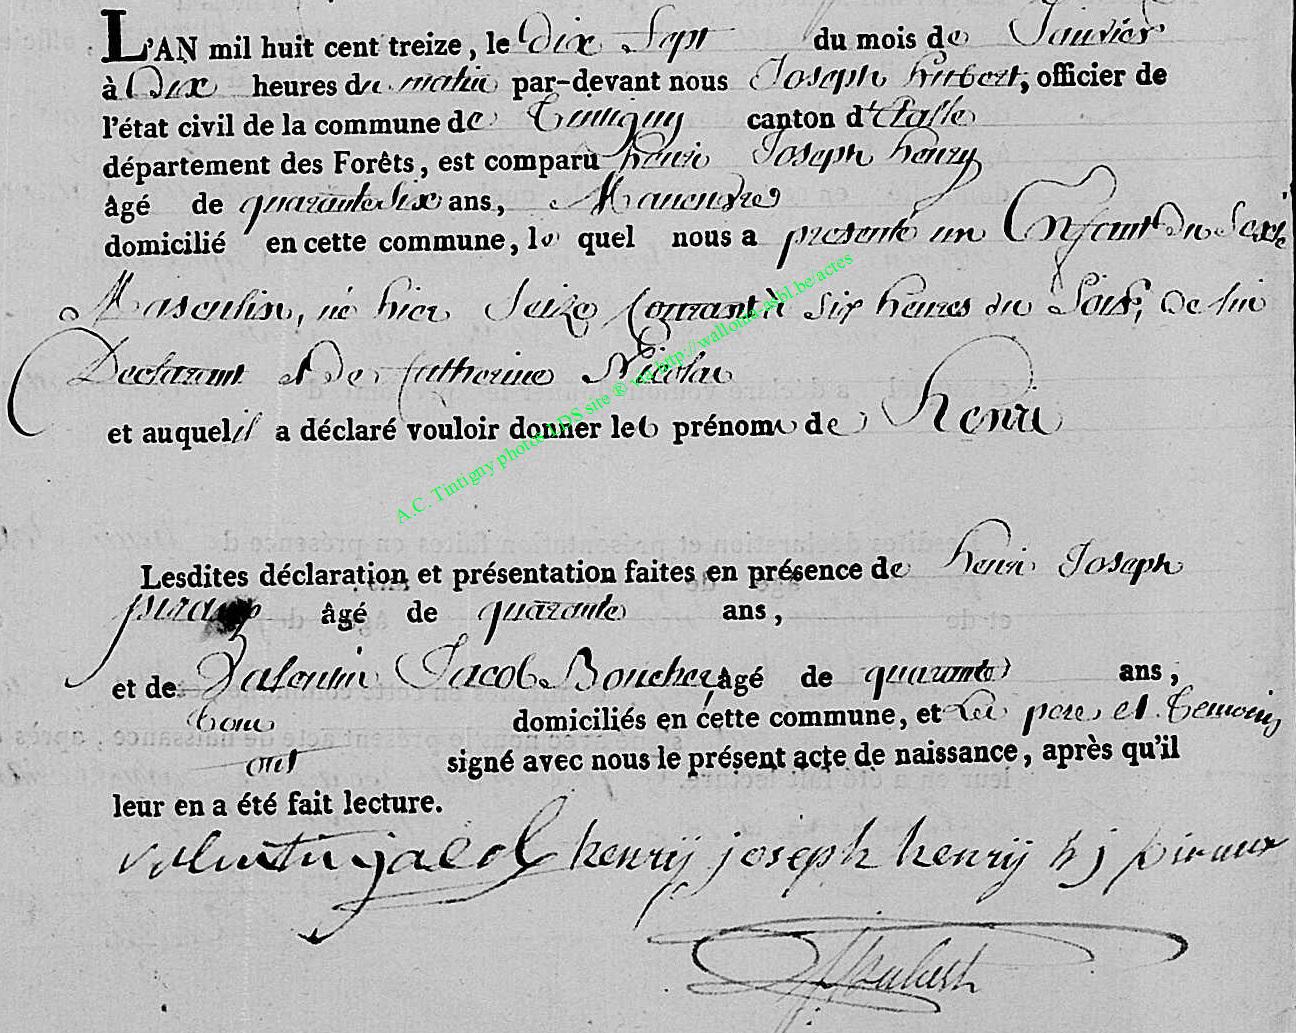 L'AN mil huit cent treize, le dix Sept du mois de Janvier
à Dix heures du matin par-devant nous Joseph hubert, officier de
l'état civil de la commune de Tintigny canton d'Etalle
département des Forêts, est comparu henri Joseph henry
âgé de quarante six ans, Manenvre
domicilié en cette commune, le quel nous a présenté un Enfant du Sexe
Masculin, né hier Seize Courant à Six heures du Soir, De lui
Declarant et De Catherine Nicolas
et auquel il a déclaré vouloir donner les prénoms de henri
Lesdites déclaration et présentation faites en présence de henri Joseph
piraux âgé de quarante ans,
et de Valentin Jacob Boucher, âgé de quarante ans,
tous domiciliés en cette commune, et Les pere et Temoins
ont signé avec nous le présent acte de naissance, après qu'il
leur en a été fait lecture.
valentin jacob henrij joseph henrij h j piraux
hubert
A.C. Tintigny photos LDS site ® via http://wallonia-asbl.be/actes